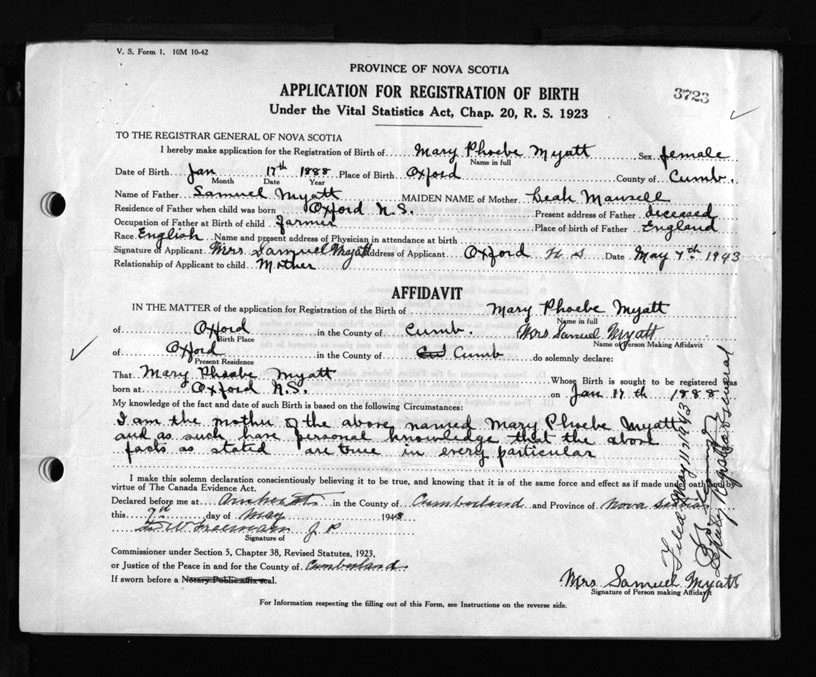 V. S. Form 1. 10M 10-42
PROVINCE OF NOVA SCOTIA
3723
APPLICATION FOR REGISTRATION OF BIRTH
Under the Vital Statistics Act, Chap. 20, R. S. 1923
TO THE REGISTRAR GENERAL OF NOVA SCOTIA
I hereby make application for the Registration of Birth of Mary Phoebe Myatt Sex female
Name in full
Date of Birth Jan 17th 1888 Place of Birth Oxford County of Cumb.
Month Date Year
Name of Father Samuel Myatt MAIDEN NAME of Mother Leah Mansell
Residence of Father when child was born Oxford N.S. Present address of Father deceased
Occupation of Father at Birth of child farmer Place of birth of Father England
Race English Name and present address of Physician in attendance at birth
Signature of Applicant Mrs. Samuel Myatt Address of Applicant Oxford N S Date May 7th 1943
Relationship of Applicant to child Mother
AFFIDAVIT
IN THE MATTER of the application for Registration of the Birth of Mary Phoebe Myatt
Name in full
of Oxford in the County of Cumb. Mrs Samuel Myatt
Birth Place Name of Person Making Affidavit
of Oxford in the County of Cumb do solemnly declare:
Present Residence
That Mary Phoebe Myatt Whose Birth is sought to be registered was
born at Oxford N.S. on Jan 17th 1888
My knowledge of the fact and date of such Birth is based on the following Circumstances:
I am the mother of the above named Mary Phoebe Myatt
and as such have personal knowledge that the above
facts as stated are true in every particular
I make this solemn declaration conscientiously believing it to be true, and knowing that it is of the same force and effect as if made under oath, by
virtue of The Canada Evidence Act.
Declared before me at Amherst in the County of Cumberland and Province of Nova Scotia
this 7th day of May 1943
W Freeman J P
Signature of
Commissioner under Section 5, Chapter 38, Revised Statutes, 1923,
or Justice of the Peace in and for the County of Cumberland
If sworn before a Notary Public affix seal.
Mrs. Samuel Myatt
Signature of Person making Affidavit
For Information respecting the filling out of this Form, see Instructions on the reverse side.
Filed May 11, 1943
Deputy Registrar General